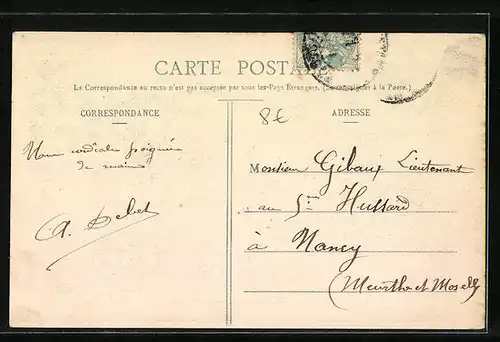 CARTE POSTALE
La Correspondance au recto n'est pas acceptée par tous les Pays Étrangers. (Se renseigner à la Poste.)
CORRESPONDANCE
8€
ADRESSE
Une cordiale poignée
de main
A. Debet
Monsieur Gibaux Lieutenant
au 5me Hussard
à Nancy
(Meurthe et Moselle